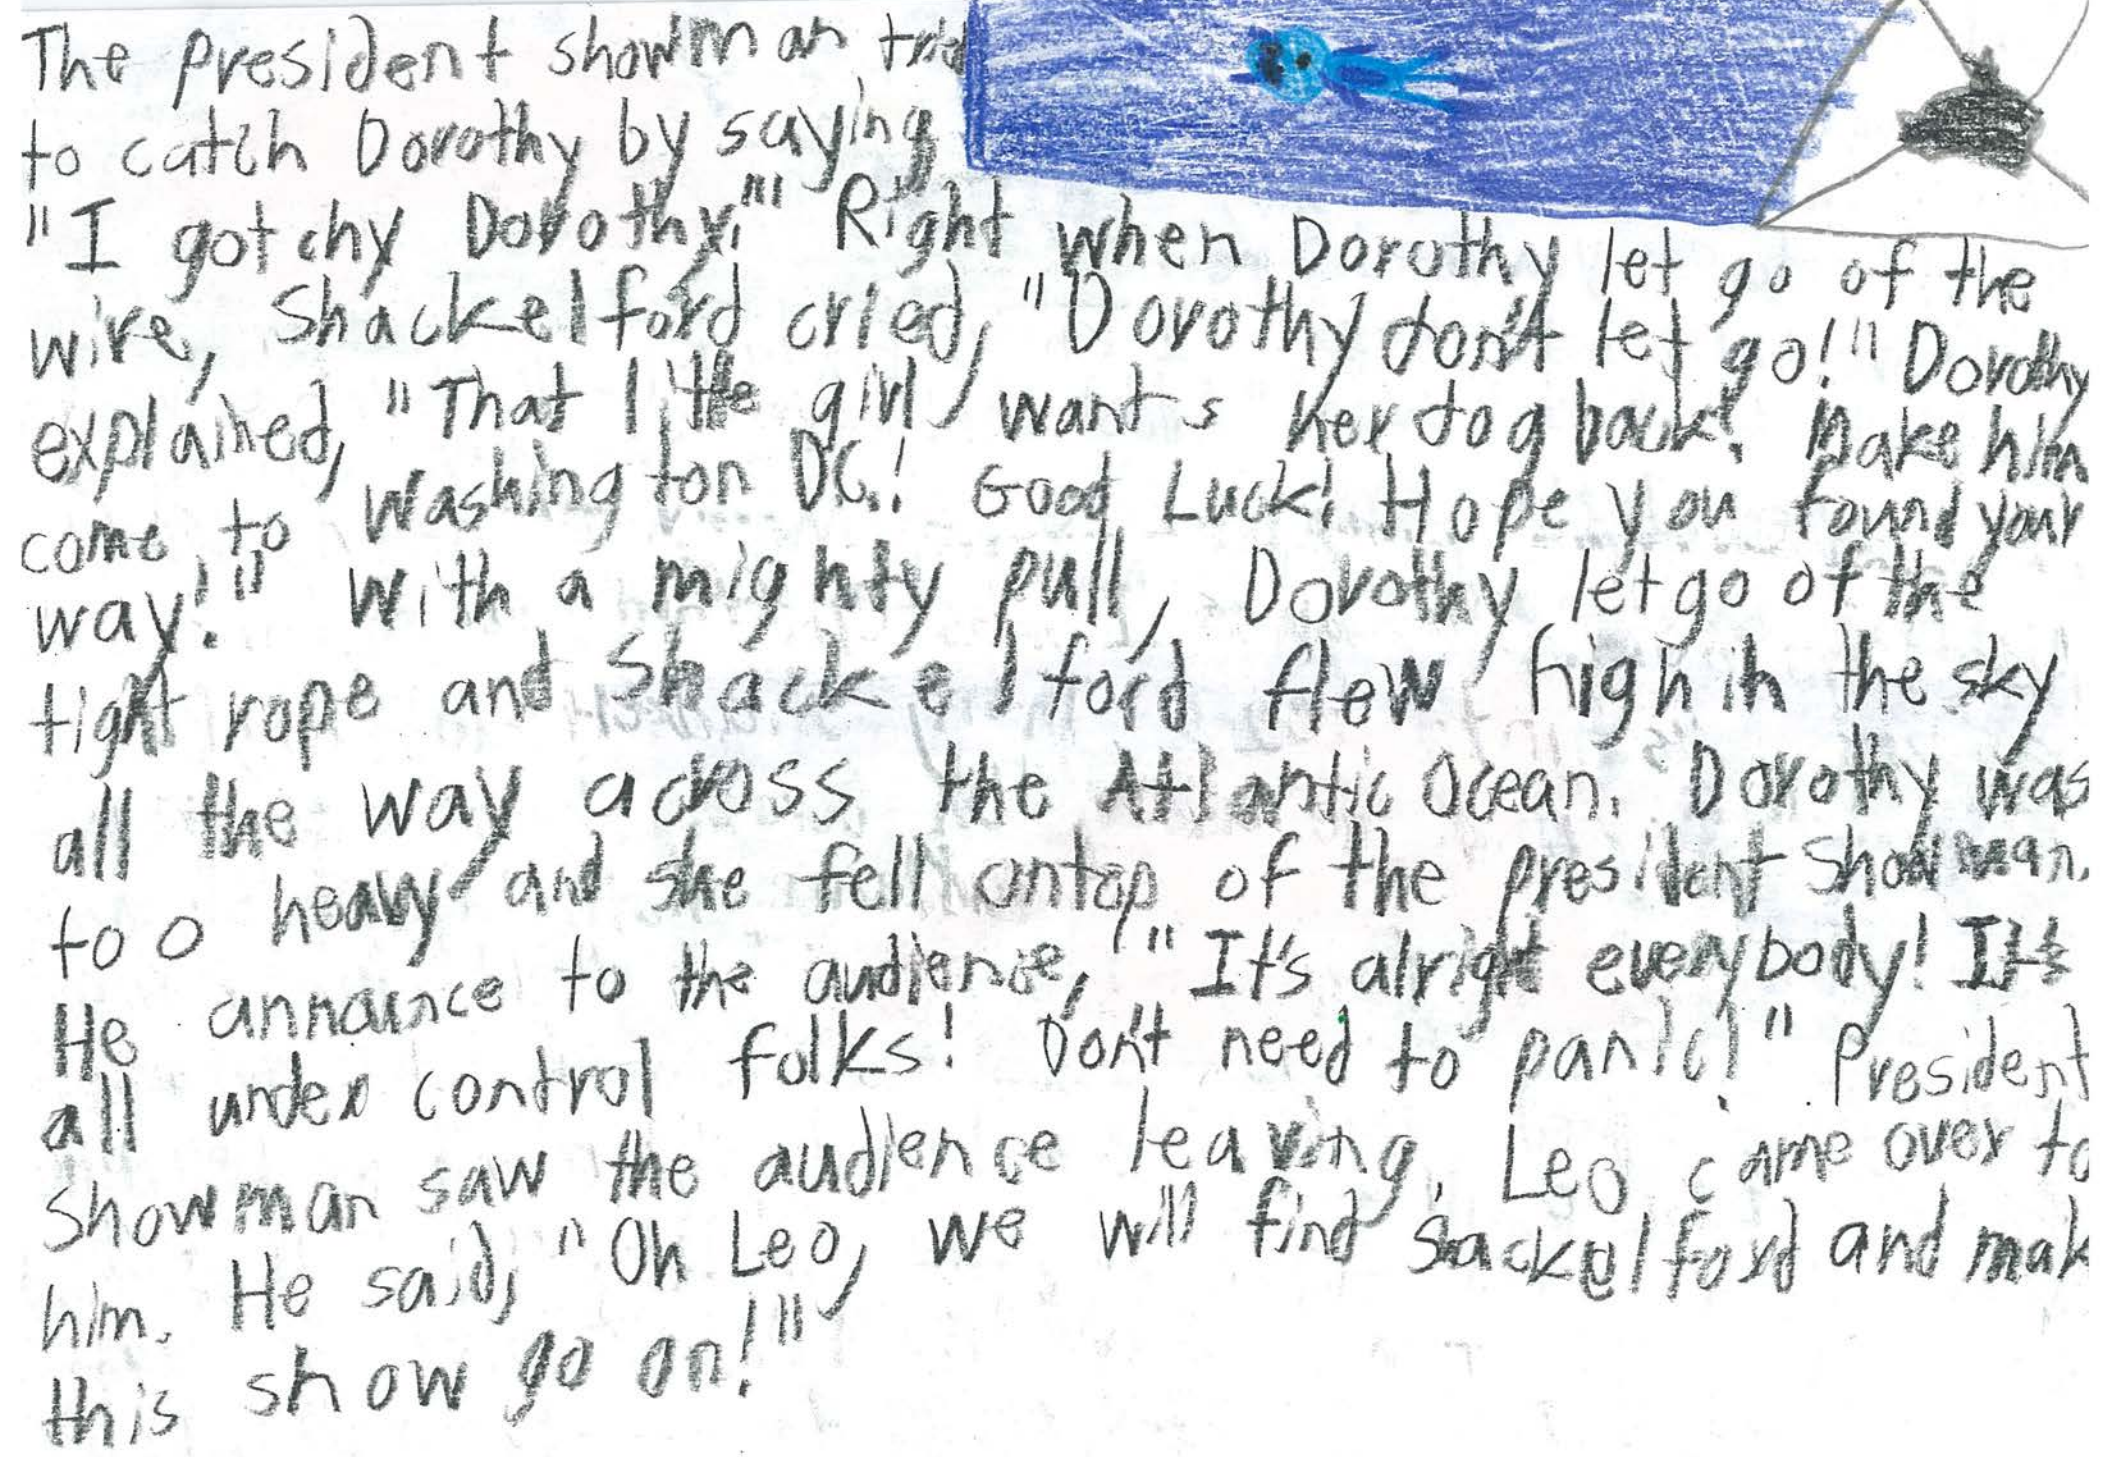 The president showman tried
to catch Dorothy by saying
"I gotchy Dorothy!" Right when Dorothy let go of the
wire, Shackelford cried, "Dorothy don't let go!" Dorothy
explained, "That little girl wants her dog back! Make him
come to Washington DC.! Good Luck! Hope you found your
way!" With a mighty pull, Dorothy let go of the
tight rope and Shackelford flew high in the sky
all the way across the Atlantic Ocean. Dorothy was
too heavy and she fell ontop of the president Showman.
He annaunce to the audience, "It's alright everybody! It's
all under control folks! Don't need to panic!" President
Showman saw the audience leaving. Leo came over to
him. He said, "Oh Leo, we will find Shackelford and mak
this show go on!"